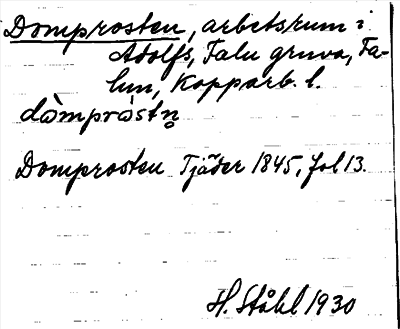 Domprosten, arbetsrum i
Adolfs, Falu gruva, Fa-
lun, Kopparb. l.
dòmpròstn̥
Domprosten Tjäder 1845, fol 13.
H. Ståhl 1930